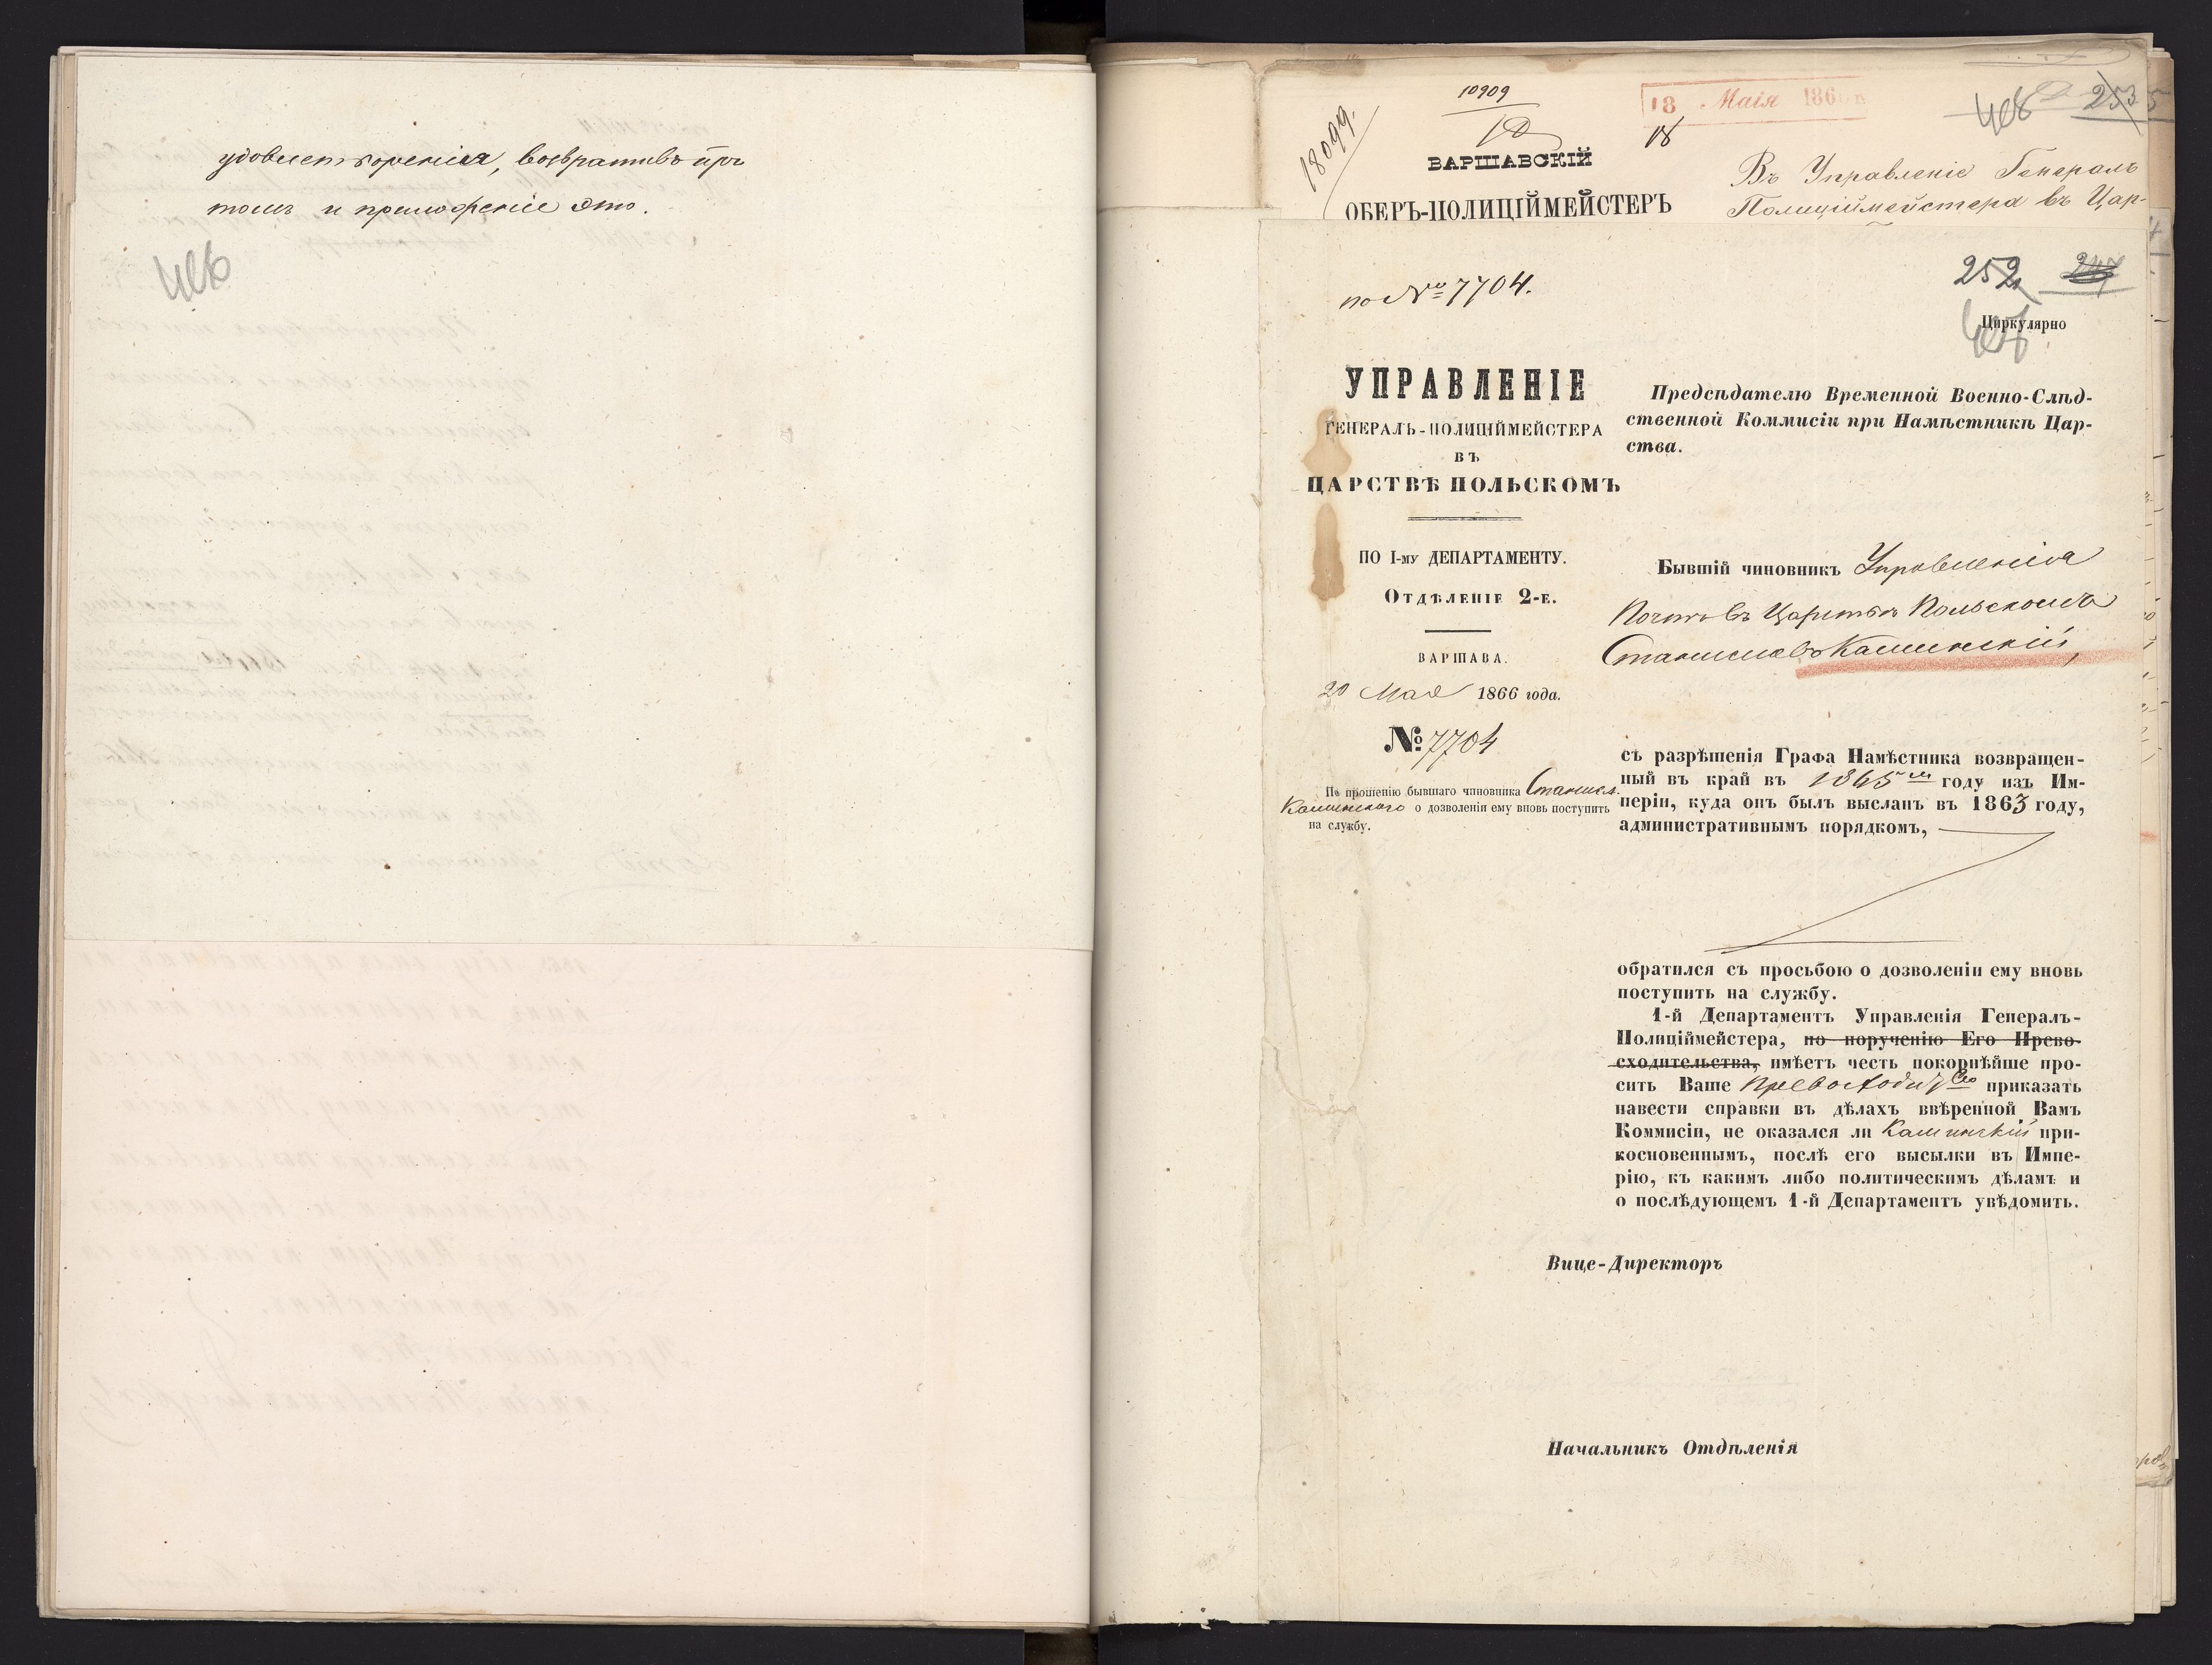 удовлетворенія, возвративъ при
томъ и приложеніе это.
10909
18099.
18 Маія 186
18
253
ВАРШАВСКІЙ
ОБЕРЪ-ПОЛИЦІЙМЕЙСТЕРЪ
Въ Управленіе Генералъ
Полиціймейстера въ Цар-
по № 7704.
252
Циркулярно
УПРАВЛЕНІЕ
ГЕНЕРАЛЪ-ПОЛИЦІЙМЕЙСТЕРА
ВЪ
ЦАРСТВѢ ПОЛЬСКОМЪ
ПО І-му ДЕПАРТАМЕНТУ.
Отдѣленіе 2-е.
ВАРШАВА.
20 Мая 1866 года.
№ 7704
По прошенію бывшаго чиновника Станисл.
Калинскаго о дозволеніи ему вновь поступить
на службу.
Предсѣдателю Временной Военно-Слѣд-
ственной Коммисіи при Намѣстникѣ Цар-
ства.
Бывшій чиновникъ Управленія
Почтъ въ Царствѣ Польскомъ
Станиславъ Калинскій,
съ разрѣшенія Графа Намѣстника возвращен-
ный въ край въ 1865 м году изъ Им-
періи, куда онъ былъ высланъ въ 1863 году,
административнымъ порядкомъ,
обратился съ просьбою о дозволеніи ему вновь
поступить на службу.
1-й Департаментъ Управленія Генералъ-
Полиціймейстера, по порученію Его Прево-
сходительства, имѣетъ честь покорнѣйше про-
сить Ваше Превосходит во приказать
навести справки въ дѣлахъ ввѣренной Вамъ
Коммисіи, не оказался ли Калинскій при-
косновеннымъ, послѣ его высылки въ Импе-
рію, къ какимъ либо политическимъ дѣламъ и
о послѣдующемъ 1-й Департаментъ увѣдомить.
Вице-Директоръ
Начальникъ Отдѣленія